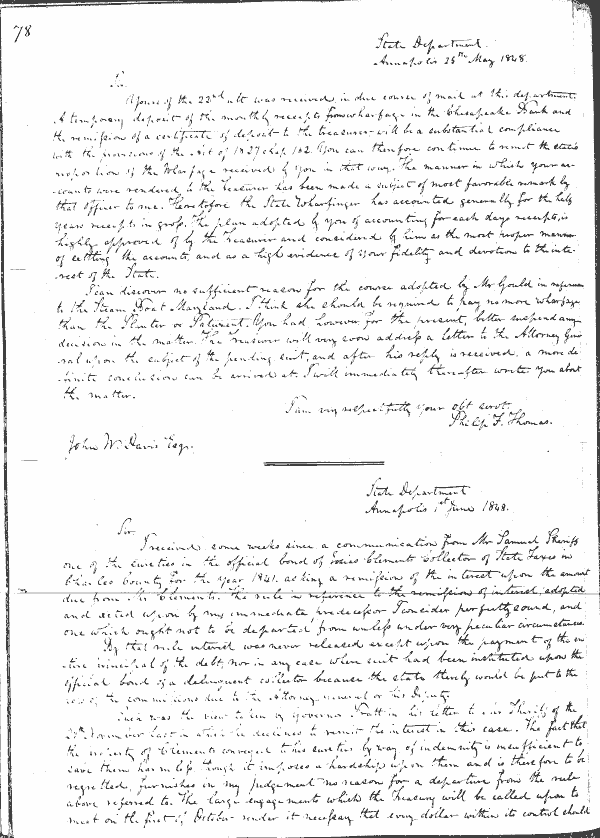 78
State Department.
Annapolis 25th May 1848.
Sir
Yours of the 22nd ult was received in due course of mail at this department.
A temporary deposit of the monthly receipts from wharfage in the Chesapeake Bank and
the remission of a certificate of deposit to the treasurer will be a substantial compliance
with the provisions of the Act of 1827 chap 162. You can therefore continue to remit the state's
proportion of the Wharfage received by you in that way. The manner in which your ac-
counts were rendered to the Treasurer has been made a subject of most favorable remark by
that officer to me. Heretofore the State Wharfinger has accounted generally for the half
years receipts in gross. The plan adopted by you of accounting for each days receipts, is
highly approved of by the Treasurer and considered by him as the most proper manner
of settling the accounts, and as a high evidence of your fidelity and devotion to the inte-
rest of the State.
I can discover no sufficient reason for the course adopted by Mr Gould in reference
to the Steam Boat Maryland. I think she should be required to pay no more wharfage
than the Planter or Patuxent. You had however for the present, better suspend any
decision in the matter. The Treasurer will very soon address a letter to the Attorney Gen-
eral upon the subject of the pending suit, and after his reply is received, a more de-
finite conclusion can be arrived at. I will immediately thereafter write you about
the matter.
I am very respectfully your obt servt.
Philip F. Thomas.
John W. Davis Esqr.
State Department
Annapolis 1st June 1848.
Sir
I received some weeks since a communication from Mr Samuel
one of the sureties in the official bond of Clements Collector of State Taxes in
Charles County for the year 1841. asking a remission of the interest upon the amount
due from Mr Clements. The rule in reference to the remission of interest, adopted
and acted upon by my immediate predecessor I consider perfectly sound, and
one which ought not to be departed from unless under very peculiar circumstances.
By that rule interest was never released except upon the payment of the en-
tire principal of the debt, nor in any case where suit had been instituted upon the
official bond of a delinquent collector because the state thereby would be put to the
loss of the commissions due to the Attorney general or his Deputy.
Such was the view taken by Governor Pratt in his letter to Mr of the
November last in which he declines to remit the interest in this case. The fact that
the property of Clements conveyed to his sureties by way of indemnity is insufficient to
save them harmless though it imposes a hardship upon them and is therefore to be
regretted, furnishes in my judgement no reason for a departure from the rule
above referred to. The large engagements which the Treasury will be called upon to
meet on the first of October render it necessary that every dollar within its control should